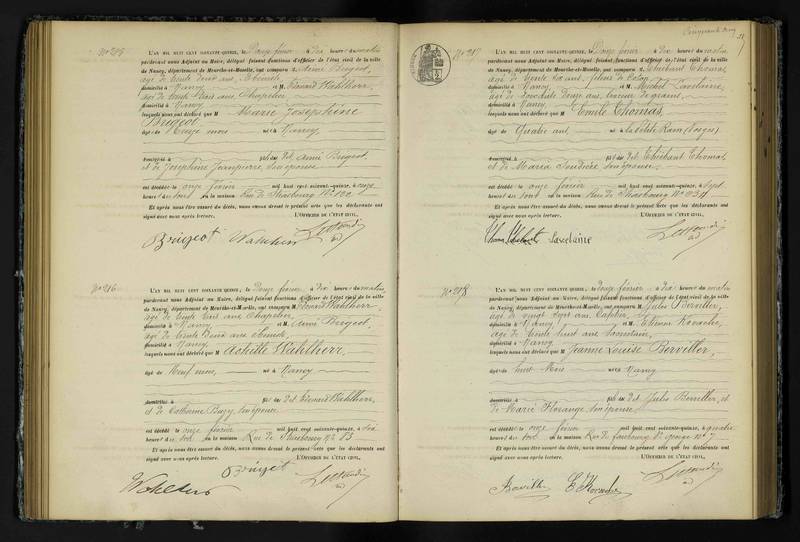 L'AN MIL HUIT CENT SOIXANTE-QUINZE, le Douze février à dix heures du matin
pardevant nous Adjoint au Maire, délégué faisant fonctions d'officier de l'état civil de la ville
de Nancy, département de Meurthe-et-Moselle, ont comparu M. Aimé Brigeot,
âgé de trente deux ans, Ebéniste,
domicilié à Nancy et M. Edouard Wahlherr,
âgé de trente trois ans, Chapelier,
domicilié à Nancy
lesquels nous ont déclaré que M Marie Joséphine
Brigeot
âgé de Onze mois né à Nancy
domicilié à fil de dit Aimé Brigeot,
et de Joséphine Jeanpierre, son épouse
est décédé le onze février mil huit cent soixante-quinze, à onze
heures du soir en la maison Rue de Strasbourg No
Et après nous être assuré du décès, nous avons dressé le présent acte que les déclarants ont
signé avec nous après lecture. L'OFFICIER DE L'ÉTAT CIVIL,
Brigeot Wahlherr
No 216
L'AN MIL HUIT CENT SOIXANTE-QUINZE, le Douze février, à dix heures du matin
pardevant nous Adjoint au Maire, délégué faisant fonctions d'officier de l'état civil de la ville
de Nancy, département de Meurthe-et-Moselle, ont comparu M. Edouard Wahlherr,
âgé de trente trois ans Chapelier
domicilié à Nancy et M. Aimé Brigeot,
âgé de trente deux ans ébéniste,
domicilié à Nancy
lesquels nous ont déclaré que M Achille Wahlherr,
âgé de Neuf mois, né à Nancy
domicilié à fil de dit Edouard Wahlherr,
et de Catherine son épouse
est décédé le onze février mil huit cent soixante-quinze, à dix
heures du soir en la maison Rue de Strasbourg No 83
Et après nous être assuré du décès, nous avons dressé le présent acte que les déclarants ont
signé avec nous après lecture. L'OFFICIER DE L'ÉTAT CIVIL,
Brigeot
No 217
L'AN MIL HUIT CENT SOIXANTE-QUINZE, le Douze février à dix heures du matin
pardevant nous Adjoint au Maire, délégué faisant fonctions d'officier de l'état civil de la ville
de Nancy, département de Meurthe-et-Moselle, ont comparu M. Thiébaut Thomas,
âgé de trente six ans, fileur de coton
domicilié à Nancy et M. Michel Lascelaine,
âgé de ans,
domicilié à Nancy
lesquels nous ont déclaré que M Emile Thomas,
âgé de Quatre ans, né à la petite Raon (Vosges)
domicilié à fil de dit Thiébaut Thomas,
et de Marie son épouse
est décédé le onze février mil huit cent soixante-quinze, à sept
heures du soir en la maison Rue de Strasbourg No
Et après nous être assuré du décès, nous avons dressé le présent acte que les déclarants ont
signé avec nous après lecture. L'OFFICIER DE L'ÉTAT CIVIL,
Lascelaine
No 218
L'AN MIL HUIT CENT SOIXANTE-QUINZE, le douze février, à dix heures du matin
pardevant nous Adjoint au Maire, délégué faisant fonctions d'officier de l'état civil de la ville
de Nancy, département de Meurthe-et-Moselle, ont comparu M. Jules Berviller,
âgé de vingt sept ans,
domicilié à Nancy et M. Etienne
âgé de trente huit ans
domicilié à Nancy
lesquels nous ont déclaré que M Jeanne Louise Berviller,
âgé de huit Mois né à Nancy
domicilié à fil de dit Jules Berviller, et
de Marie Florange son épouse
est décédé le onze février mil huit cent soixante-quinze, à quatre
heures du soir en la maison Rue du faubourg St george No 7
Et après nous être assuré du décès, nous avons dressé le présent acte que les déclarants ont
signé avec nous après lecture. L'OFFICIER DE L'ÉTAT CIVIL,